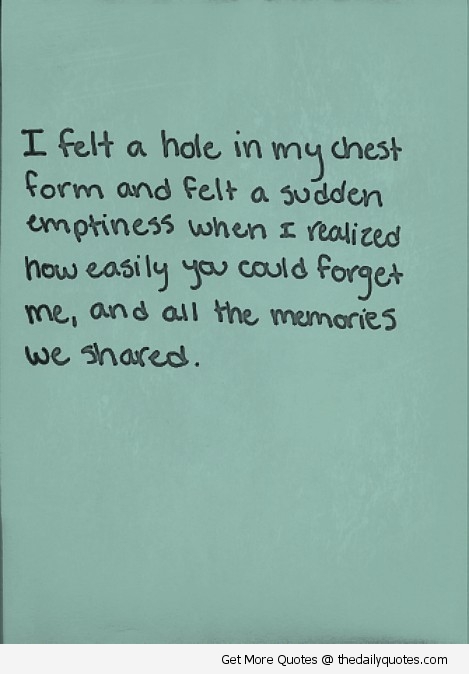 I felt a hole in my chest
form and felt a sudden
emptiness when I realized
how easily you could forget
me, and all the memories
we shared.
Get More Quotes @ thedailyquotes.com